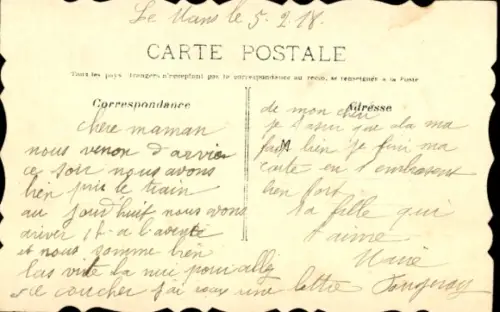 Le Mans le 5.2.18.
CARTE POSTALE
Tous les pays étrangers n'acceptent pas la correspondance au recto, se renseigner à la Poste
Correspondance
chere maman
nous venon d'arrier
ce soir nous avons
bien pris le train
au jourd'huit nous avons
ariver
et nous somme bien
las vide la nue pour allez
ce coucher j'ai une lettre
Adresse
de mon cheri
je que ala ma
M
fait bien je fini ma
carte en t'embrasent
bien fort.
ta fille qui
t'aime
Marie